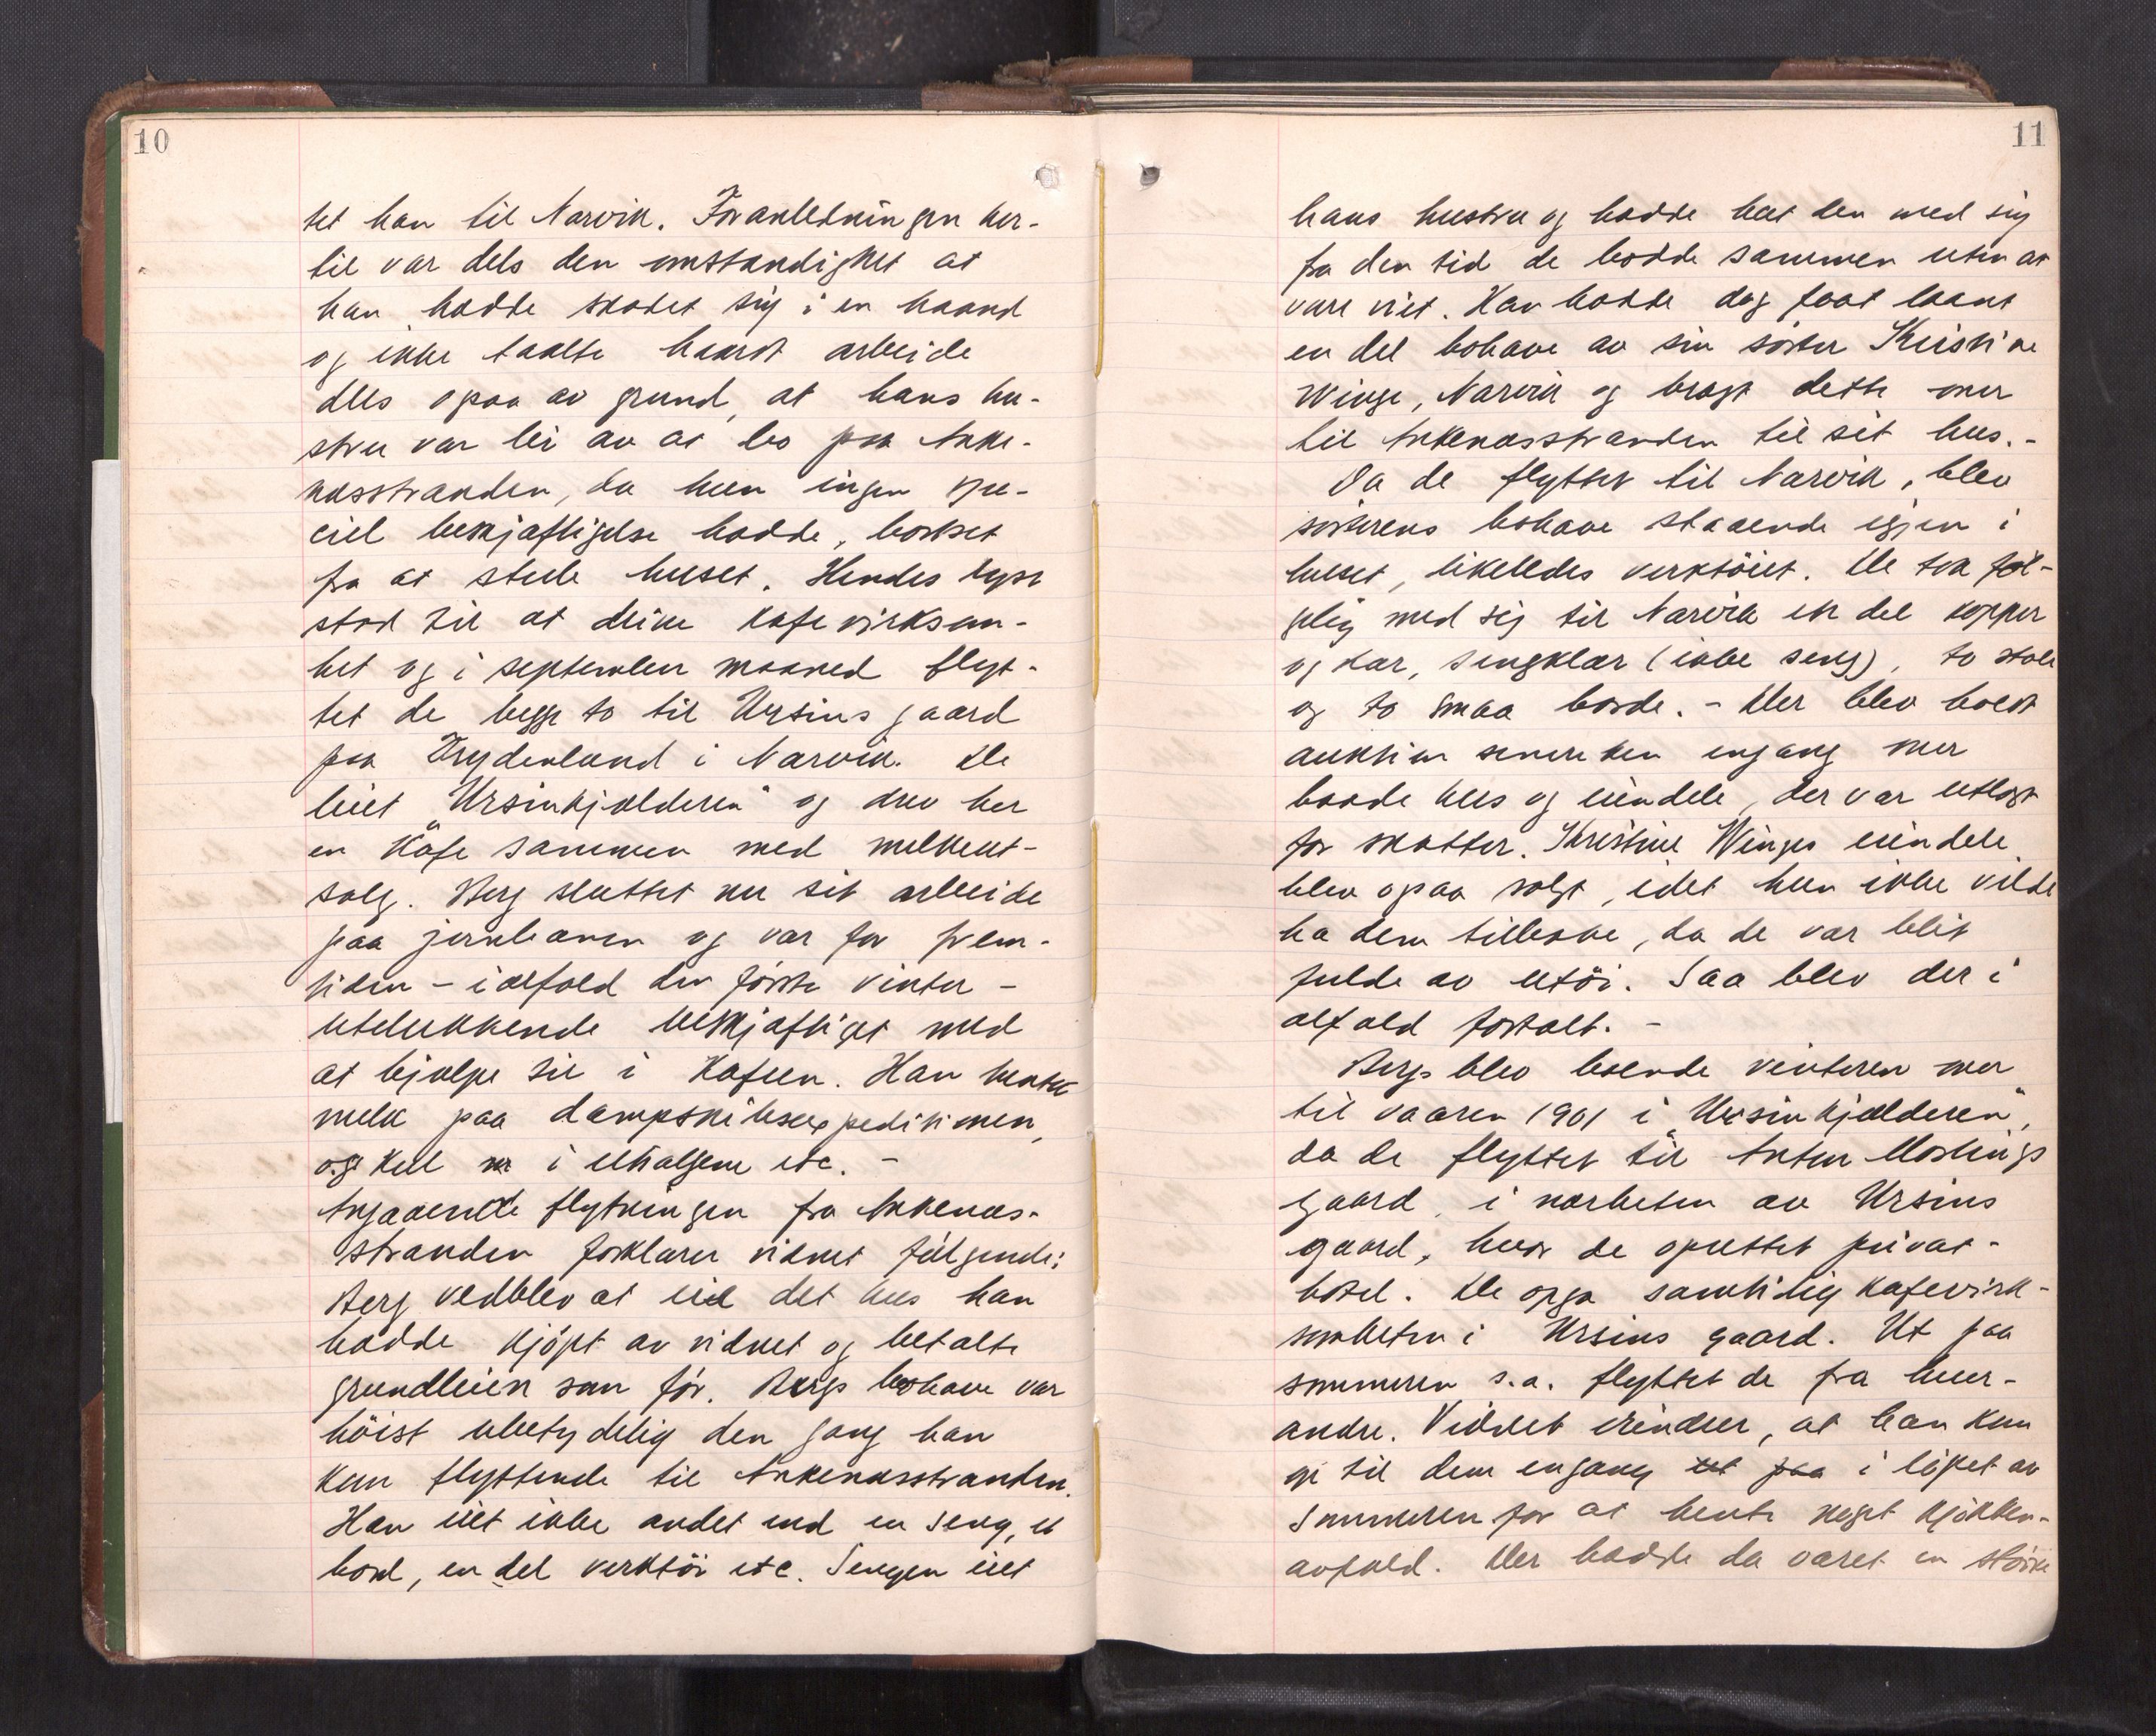 10
tet han til Narvik. Foranledningen her-
til var dels den omstændighet at
han hadde skadet sig i en haand
og ikke taalte haardt arbeide
dels ogsaa av grund, at hans hu-
stru var lei av at bo paa Anke-
nesstranden, da hun ingen spe-
ciel beskjæftigelse hadde, bortset
fra at stelle huset. Hendes lyst
stod til at drive kafevirksom-
het og i september maaned flyt-
tet de begge to til Ursins gaard
paa Frydenlund i Narvik. De
leiet "Ursinkjælderen" og drev her
en Kafe sammen med melkeut-
salg. Berg sluttet nu sit arbeide
paa jernbanen og var for frem-
tiden - ialfald den første vinter -
utelukkende beskjæftiget med
at hjælpe til i Kafeen. Han hentet
melk paa dampskibsexpeditionen,
og kul i uthalgene etc. -
Angaaende flytningen fra Ankenes-
stranden forklarer vidnet følgende:
Berg vedblev at eie det hus han
hadde kjöpt av vidnet og betalte
grundleien som för. Bergs bohave var
höist ubetydelig den gang han
kom flyttende til Ankenesstranden.
Han eiet ikke andet end en seng, et
bord, en del verktöi etc. Sengen eiet
11
hans hustru og hadde hat den med sig
fra den tid de bodde sammen uten at
være viet. Han hadde dog faat laant
en del bohave av sin søster Kristine
Winge, Narvik og bragt dette over
til Ankenesstranden til sit hus. -
Da de flyttet til Narvik, blev
søsterens bohave staaende igjen i
huset, likeledes verktöiet. De tok föl-
gelig med sig til Narvik en del kopper
og kar, sengklær (ikke seng), to stole
og to smaa borde. - Der blev holdt
auktion senere hen engang over
baade hus og eiendele, der var utlagt
for skatter. Kristine Winges eiendele
blev ogsaa solgt, idet hun ikke vilde
ha dem tilbake, da de var blit
fulde av utöi. Saa blev der i
alfald fortalt. -
Bergs blev boende vinteren over
til vaaren 1901 i "Ursinkjælderen",
da de flyttet til Anton Mostings
gaard, i nærheten av Ursins
gaard, hvor de oprettet privat-
hotel. De opga samtidig kafevirk-
somheten i Ursins gaard. Ut paa
sommeren s.a. flyttet de fra hver-
andre. Vidnet erindrer, at han kom
op til dem engang ut paa i löpet av
sommeren for at hente noget kjökken-
avfald. Der hadde da været en större